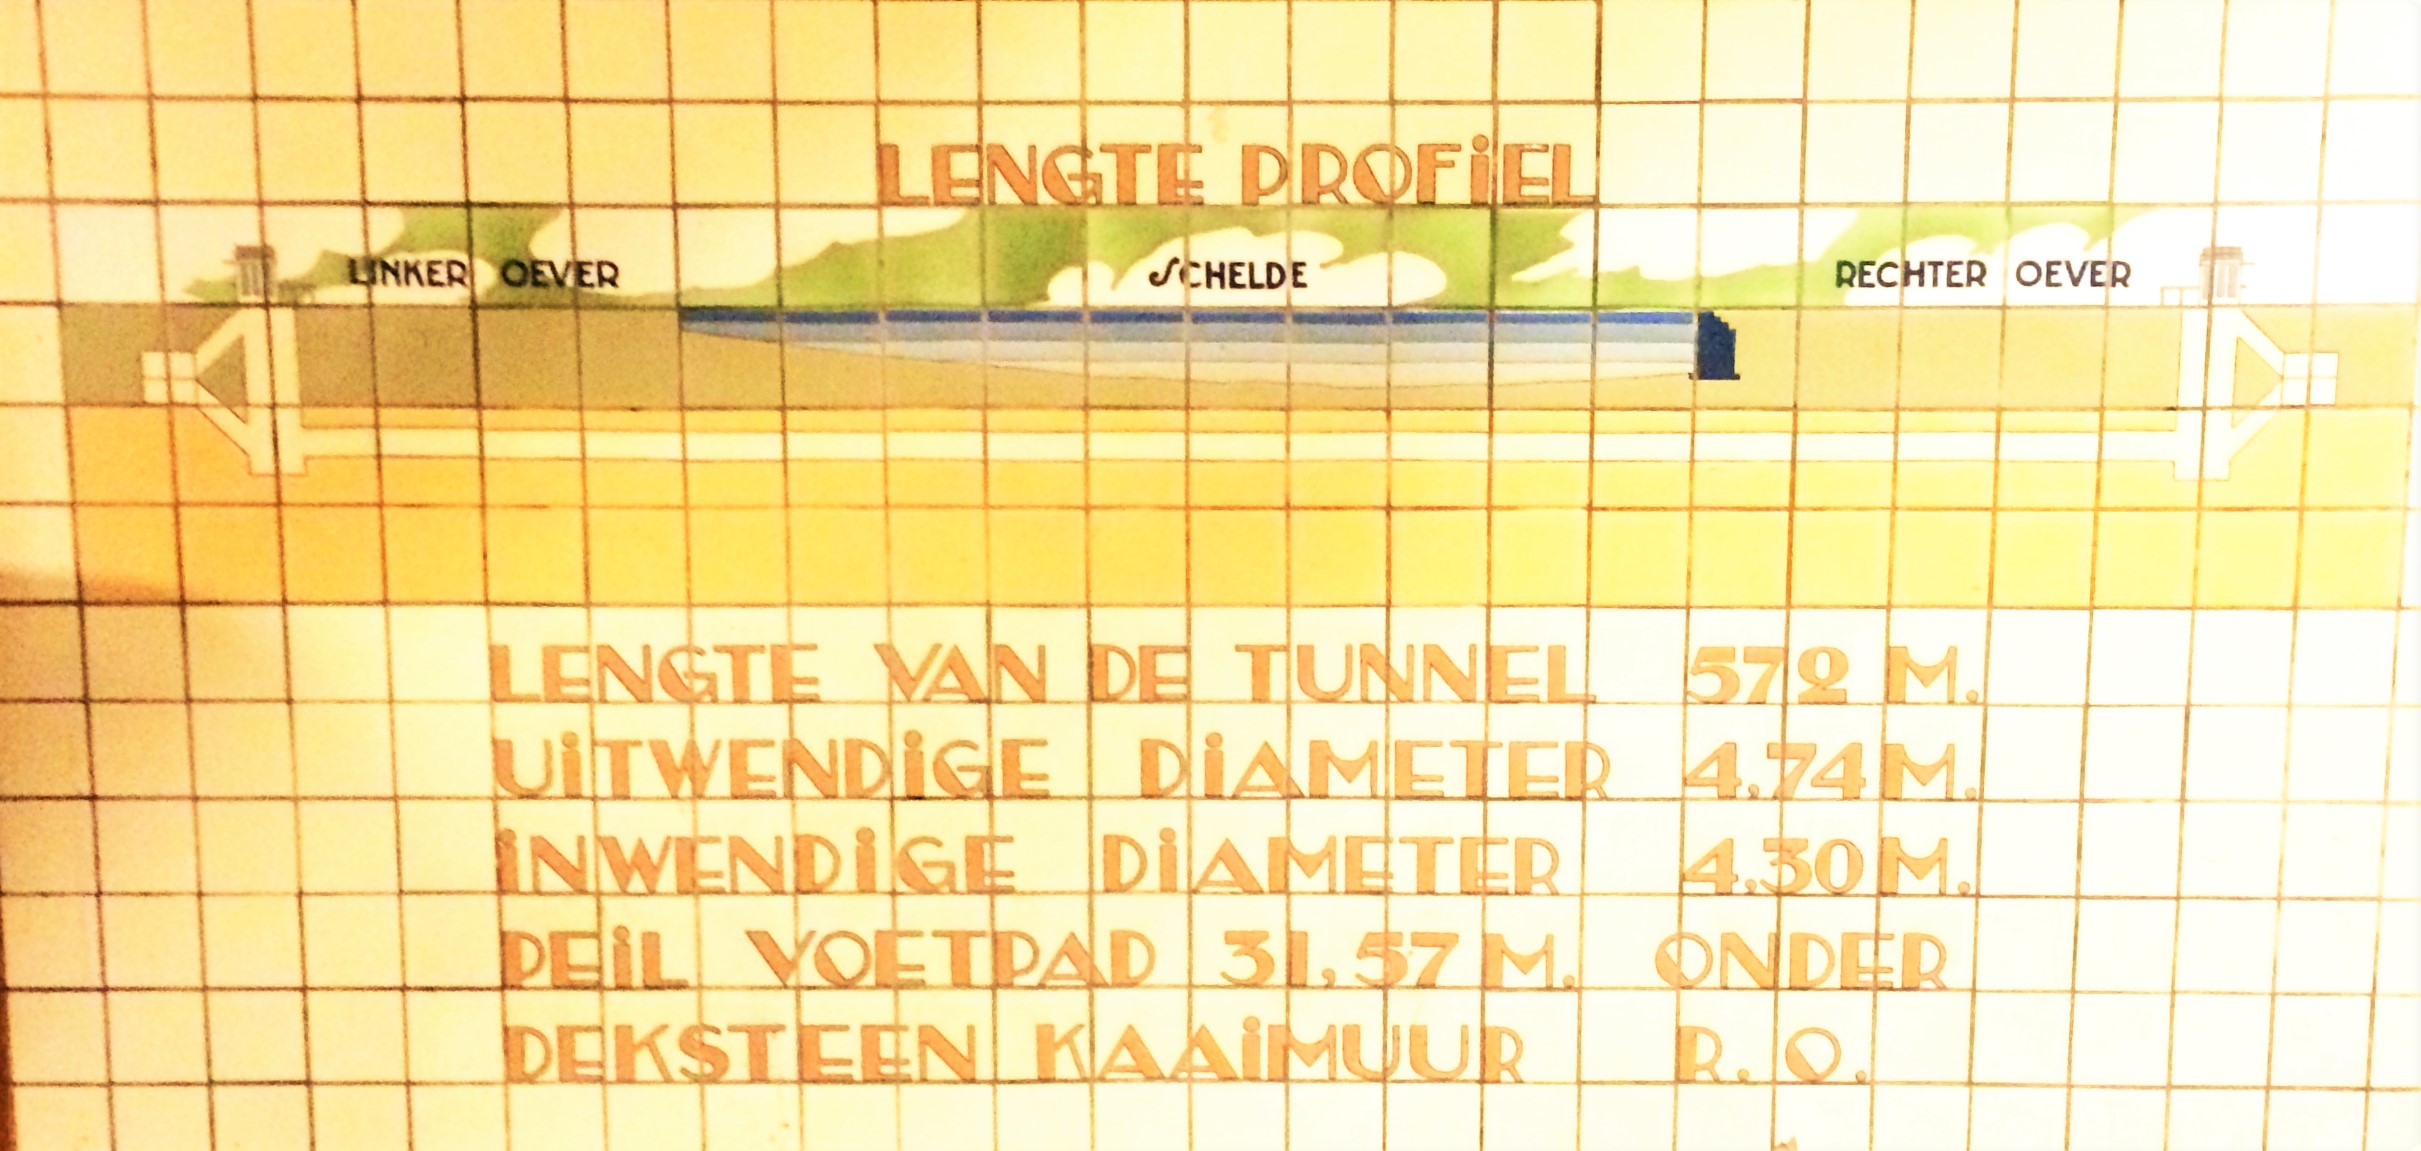 LENGTE PROFiEL
LINKER OEVER SCHELDE RECHTER OEVER
LENGTE VAN DE TUNNEL 572 M.
UiTWENDiGE DiAMETER 4,74 M.
iNWENDiGE DiAMETER 4,30 M.
PEiL VOETPAD 31,57 M. ONDER
DEKSTEEN KAAiMUUR R. O.